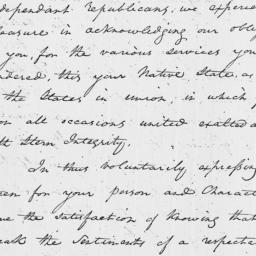 dependant republicans, we experie
leasure in acknowledging our obli
you, for the various services you
ndered, this your Native State, as
the States in union; in which
on all occasions united exalted a
Stern Integrity.
In thus voluntarily expressing
een for your person and Charact
the satisfaction of knowing that
eak the Sentiments of a respecta